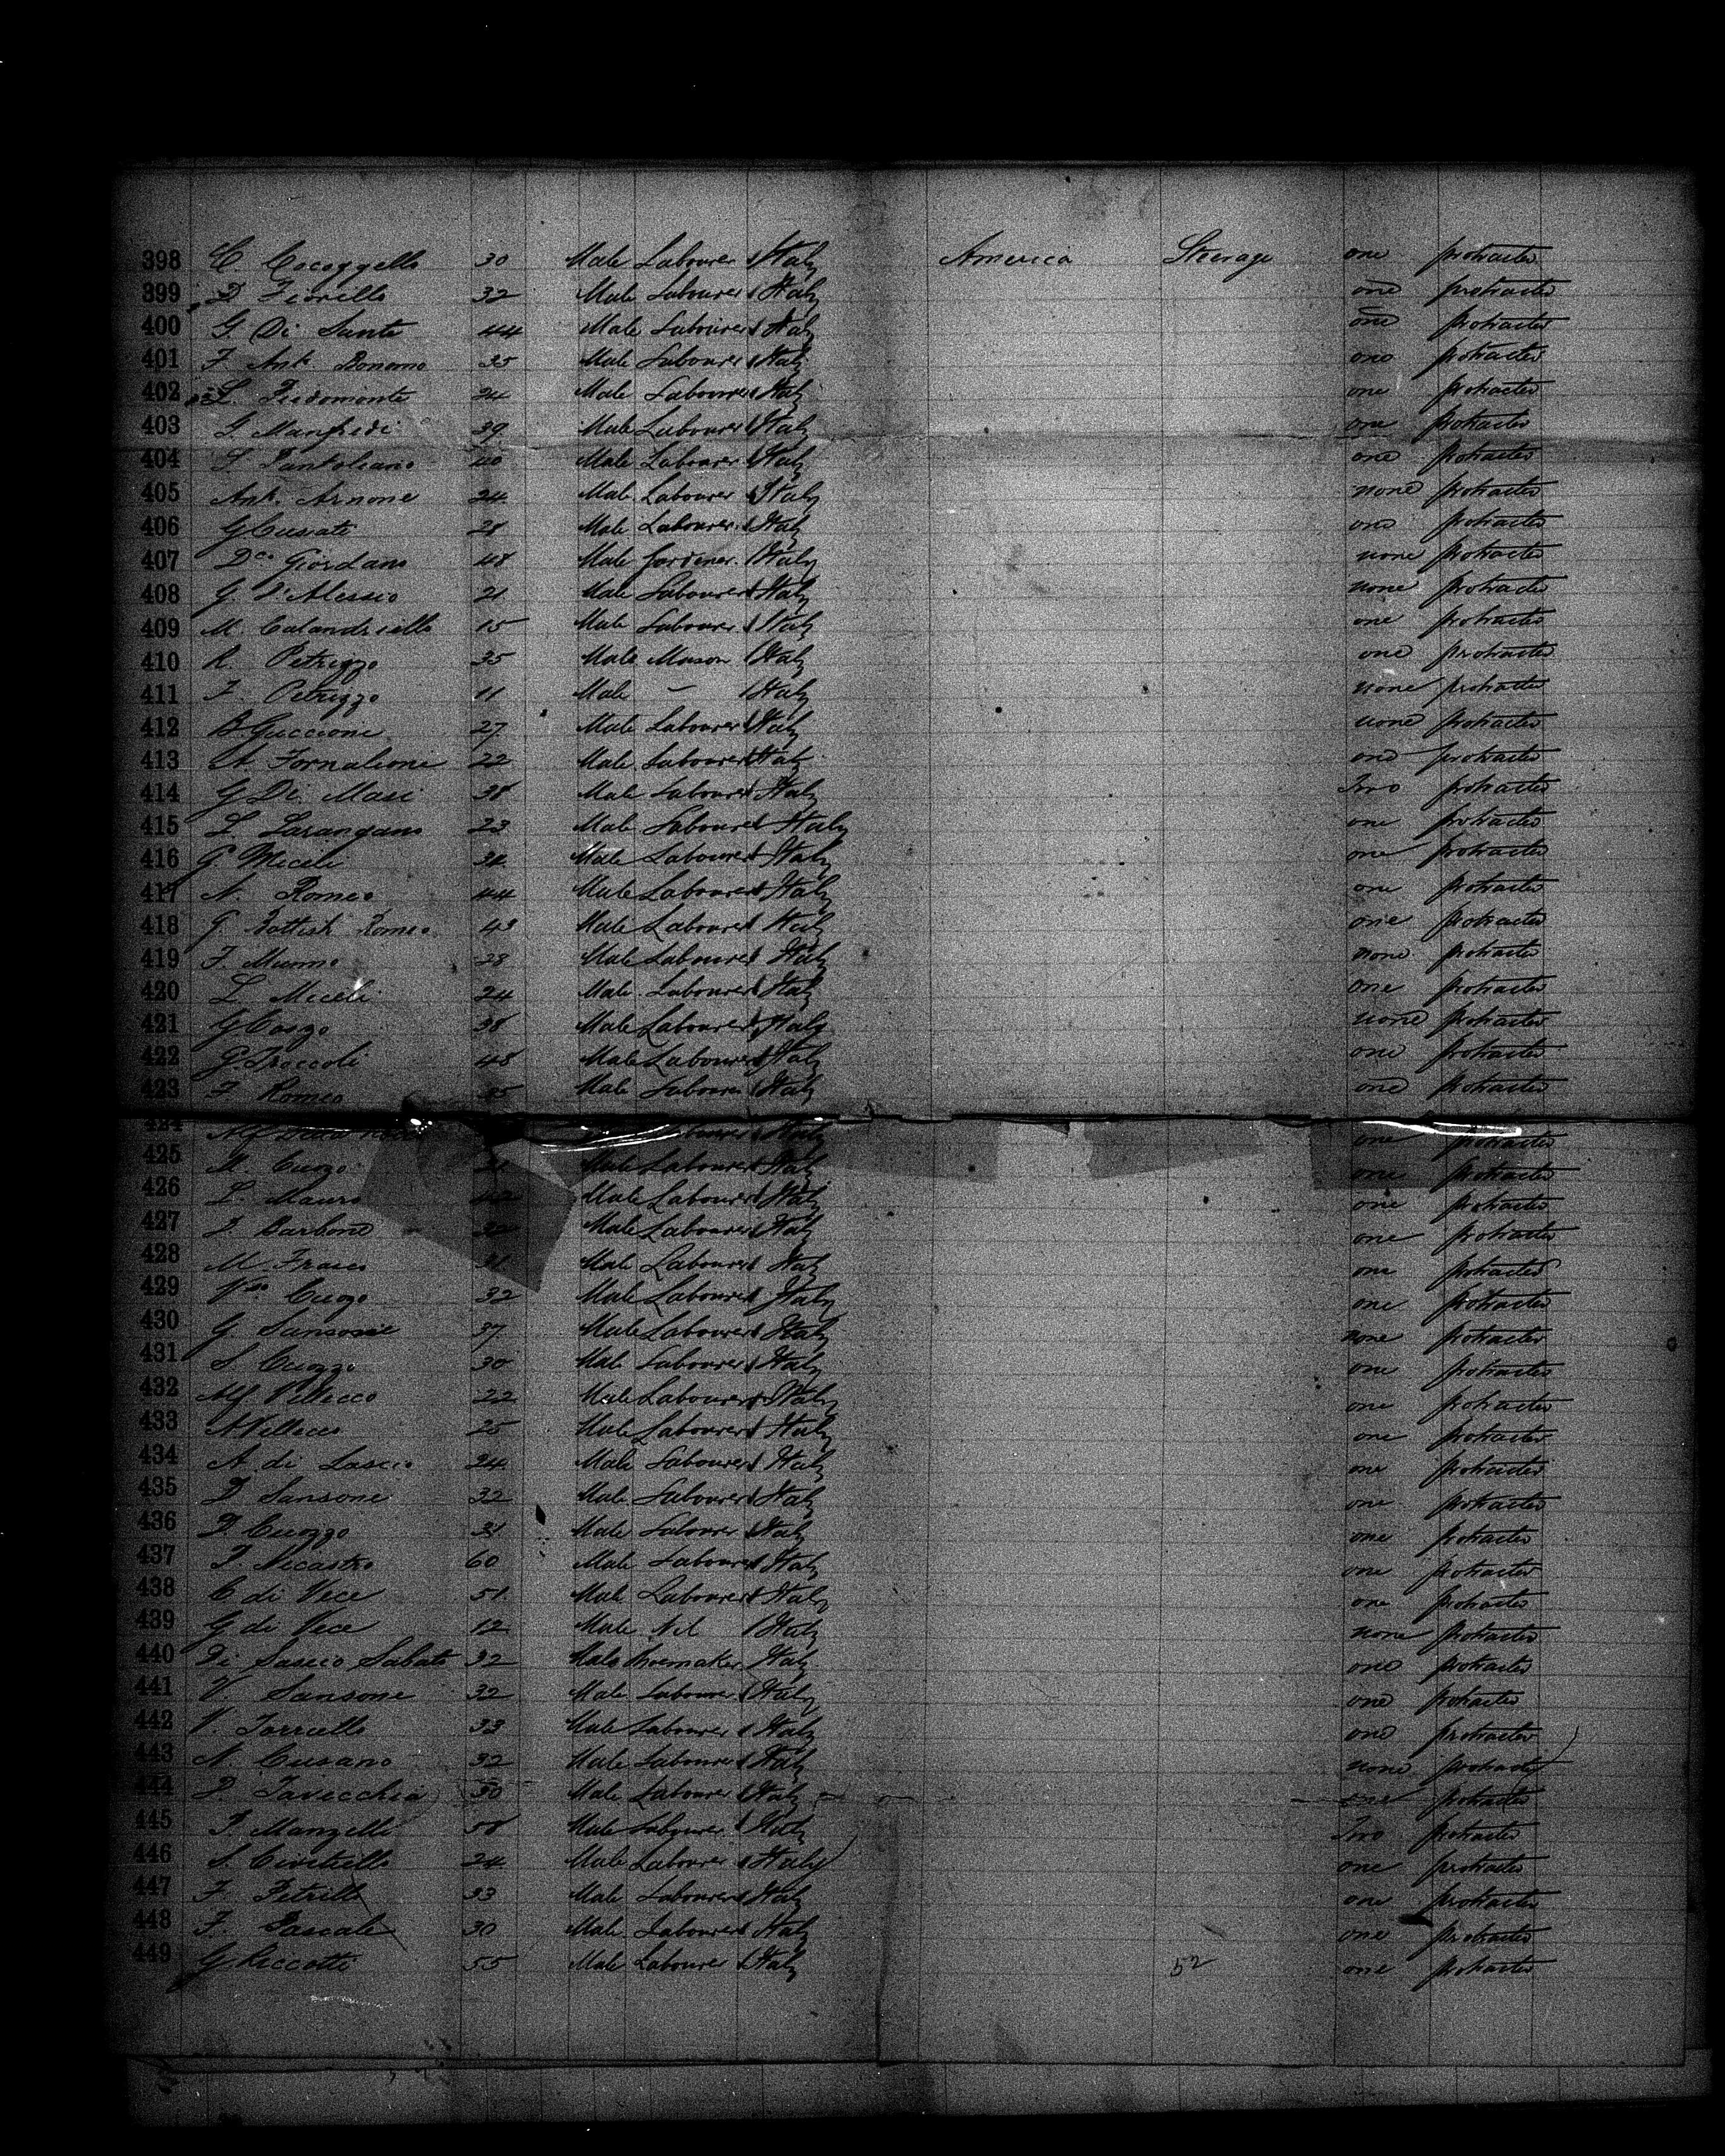 398 C. Cocozzello 30 Male Labourer Italy America Steerage one protracted
399 D Fiorillo 32 Male Labourer Italy one protracted
400 G Di Santo 44 Male Labourer Italy one protracted
401 F. Ant. Bonomo 35 Male Labourer Italy one protracted
402 L. Piedomonte 24 Male Labourer Italy one protracted
403 G. Manfredi 39 Male Labourer Italy one protracted
404 L Pantoliano 40 Male Labourer Italy one protracted
405 Ant. Arnone 24 Male Labourer Italy none protracted
406 G Cusati 28 Male Labourer Italy one protracted
407 Dco Giordano 48 Male Gardener Italy none protracted
408 G. D'Alessio 21 Male Labourer Italy none protracted
409 M. Calandriello 15 Male Labourer Italy one protracted
410 R. Petrizzo 35 Male Mason Italy one protracted
411 F. Petrizzo 11 Male – Italy none protracted
412 B Guccione 27 Male Labourer Italy none protracted
413 A Fornalione 22 Male Labourer Italy one protracted
414 G Di Masi 38 Male Labourer Italy Two protracted
415 L. Larangano 23 Male Labourer Italy one protracted
416 G Miceli 34 Male Labourer Italy one protracted
417 N. Romeo 44 Male Labourer Italy one protracted
418 G. Battist Romeo 43 Male Labourer Italy one protracted
419 F. Munno 28 Male Labourer Italy none protracted
420 L. Miceli 24 Male Labourer Italy one protracted
421 G 38 Male Labourer Italy none protracted
422 G. Troccoli 48 Male Labourer Italy one protracted
423 F Romeo 35 Male Labourer Italy one protracted
424 Labourer Italy one protracted
425 M. Cuozo 21 Male Labourer Italy one protracted
426 L. Mauro 42 Male Labourer Italy one protracted
427 F. Barbone 32 Male Labourer Italy one protracted
428 M Frasco 31 Male Labourer Italy one protracted
429 Cuozo 32 Male Labourer Italy one protracted
430 G Sansone 37 Male Labourer Italy none protracted
431 S Cuozzo 30 Male Labourer Italy one protracted
432 Alf Vellecco 22 Male Labourer Italy one protracted
433 A Vellecco 25 Male Labourer Italy one protracted
434 A. di Lascio 24 Male Labourer Italy one protracted
435 D Sansone 32 Male Labourer Italy one protracted
436 D. Cuozzo 31 Male Labourer Italy one protracted
437 P. Nicastro 60 Male Labourer Italy one protracted
438 C di Vece 51 Male Labourer Italy one protracted
439 G di Vece 12 Male Nil Italy none protracted
440 Di Sascio Sabato 32 Male Shoemaker Italy one protracted
441 V. Sansone 32 Male Labourer Italy one protracted
442 V. Torriello 33 Male Labourer Italy one protracted
443 N. Cusano 32 Male Labourer Italy none protracted
444 P Tavecchia 30 Male Labourer Italy one protracted
445 P. Manzelli 58 Male Labourer Italy Two protracted
446 S. Civitello 24 Male Labourer Italy one protracted
447 F. Petrillo 33 Male Labourer Italy one protracted
448 F. Pascale 30 Male Labourer Italy one protracted
449 G Riccotti 55 Male Labourer Italy 52 one protracted